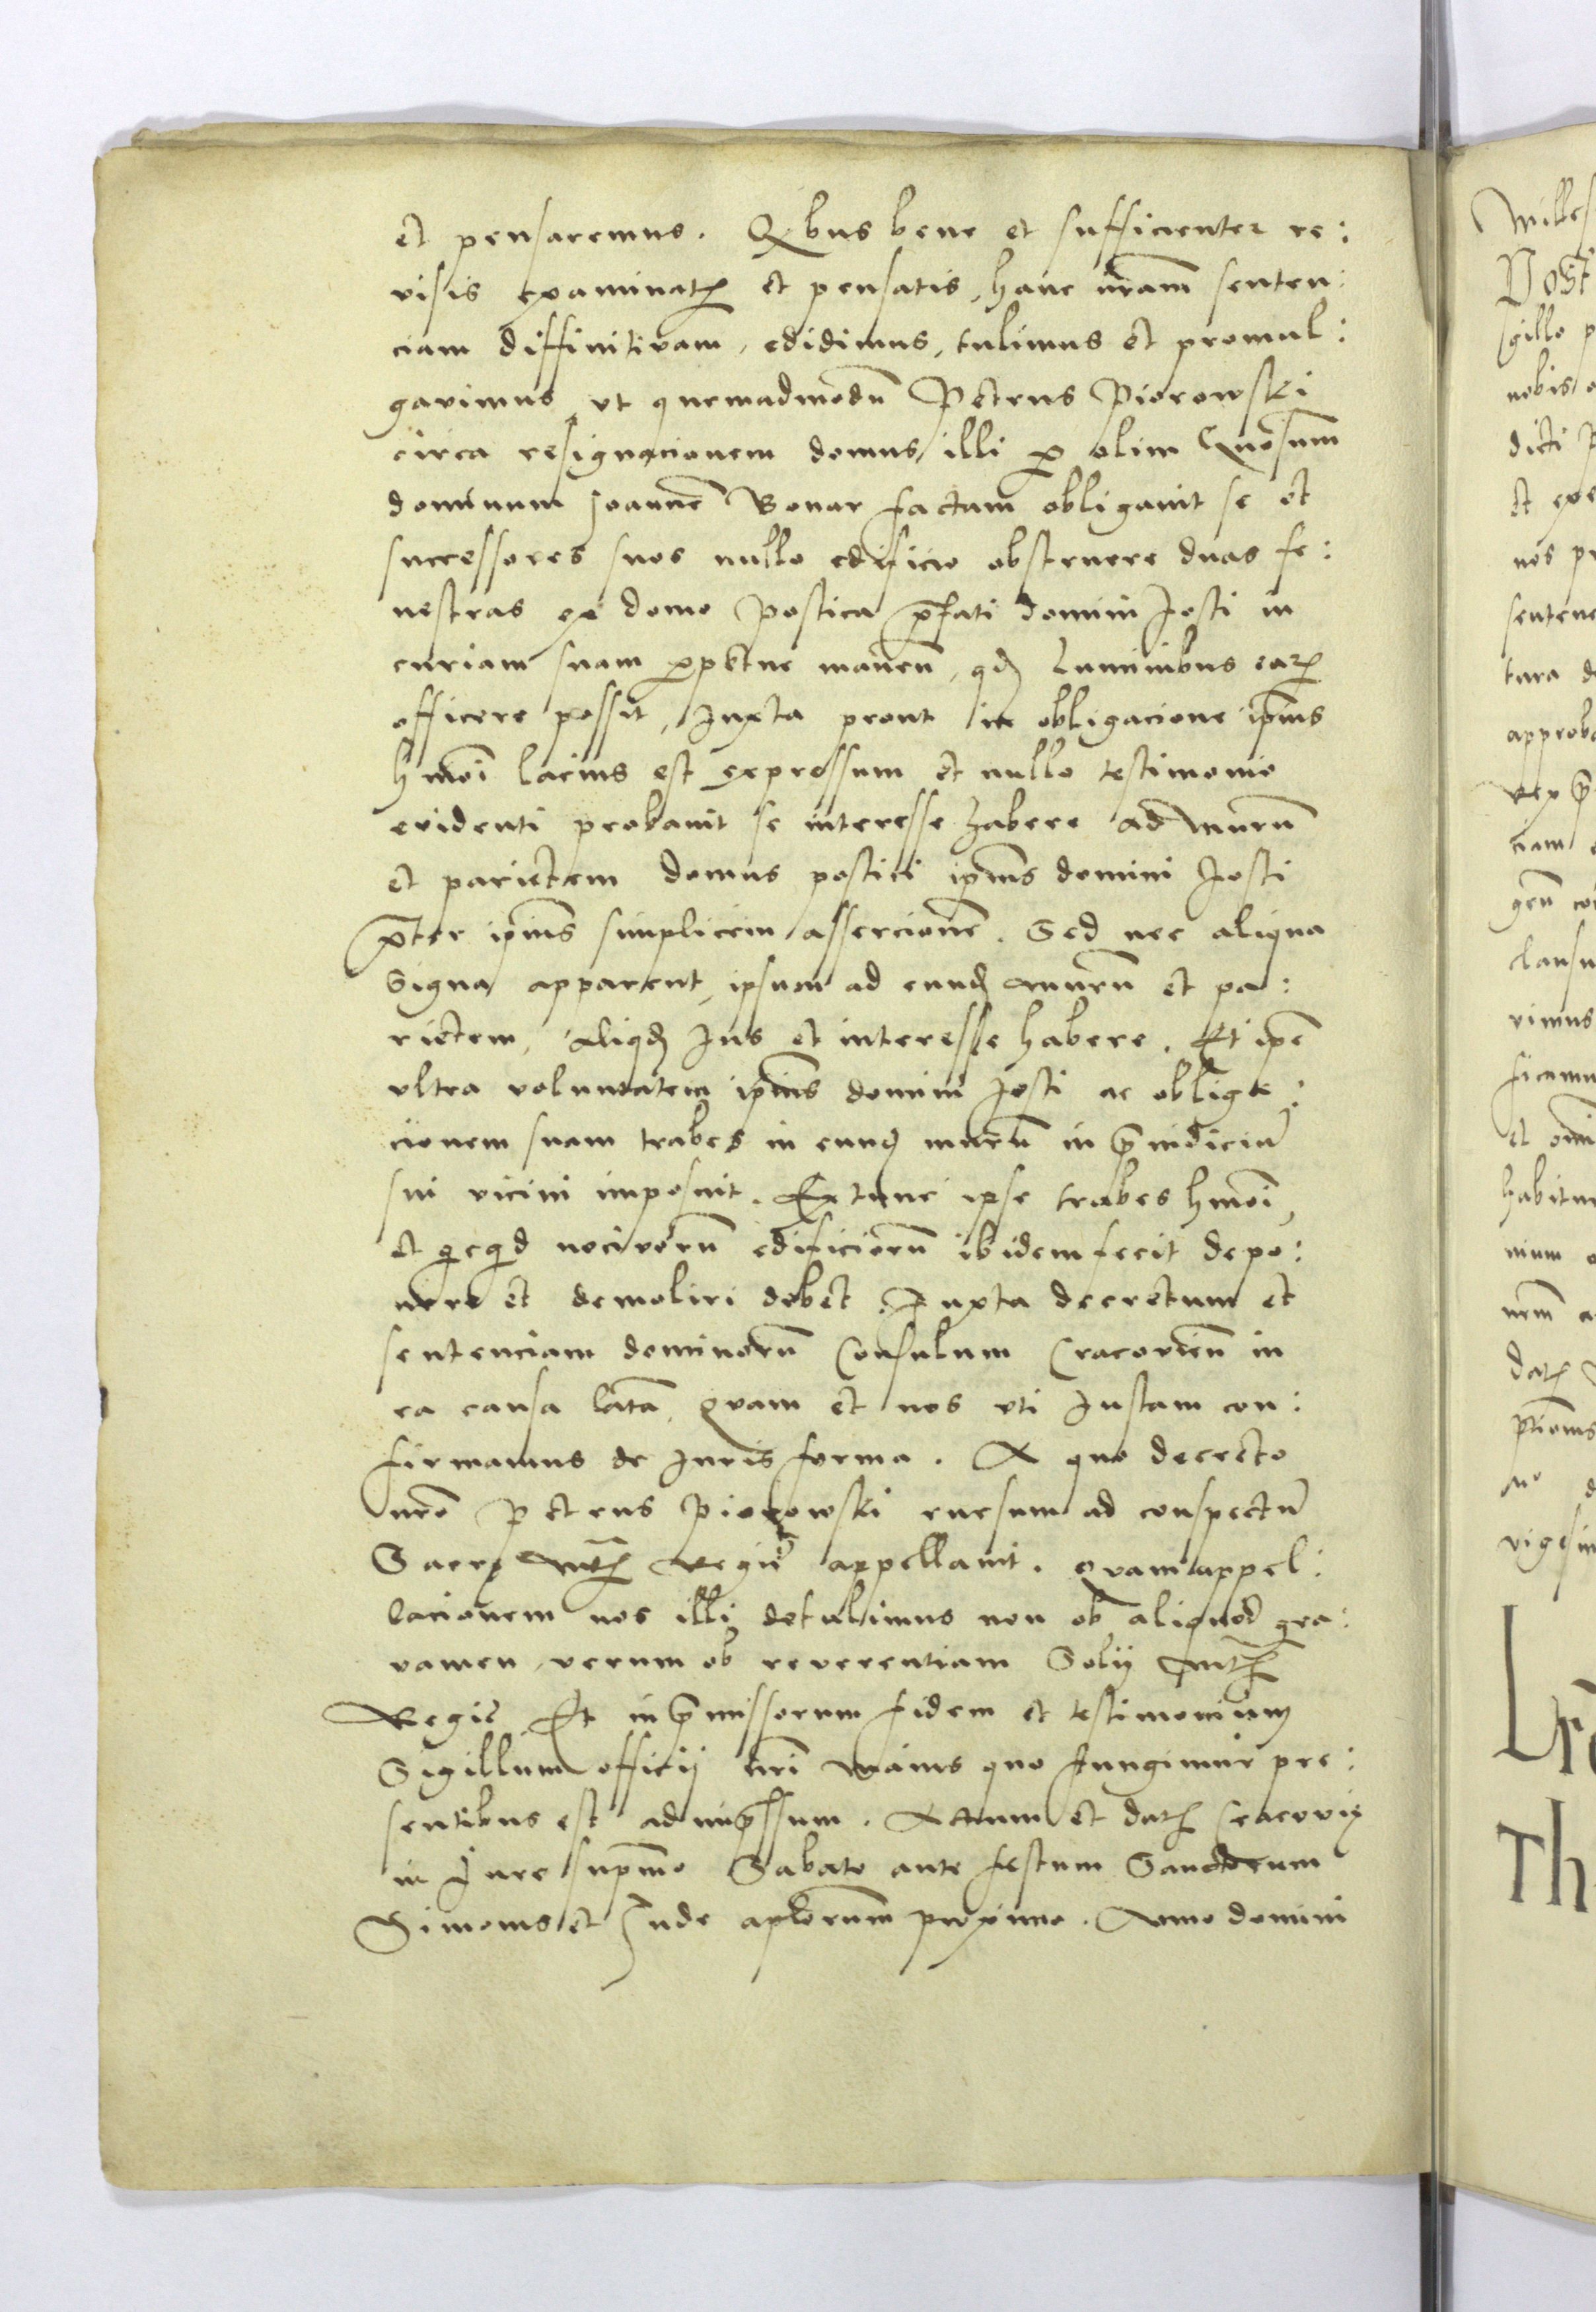 et pensaremus. Qbus bene et sufficienter re:
visis examinatꝫ et pensatis, hanc nr̄am senten:
ciam diffinitivam, edidimus, tulimus et promul:
gavimus, ut quemadmodū Petrus Piorowski
circa resignacionem domus illi ꝑ olim Gnosum
dominum Joannē Bonar factam obligavit se et
successores suos nullo edificio obstruere duas fe:
nestras ex domo postica p̄fati domini Josti in
curiam suam ꝑpetue manen̄, qđ Luminibus eaꝝ
officere possit, Juxta prout in obligacione ip̄ius
hm̄oi lacius est expressum et nullo testimonio
evidenti probavit se interesse habere ad murū
et parietem domus postici ip̄ius domini Josti
p̄ter ip̄ius simplicem assercionē. Sed nec aliqua
Signa apparent, ipsum ad eundꝫ murū et pa:
rietem, Aliqđ Jus et interesse habere. Et ip̄e
ultra voluntatem ip̄ius domini Josti ac obliga:
cionem suam trabes in eundꝫ murū in p̄iudiciū
sui vicini imposuit. Ex tunc ipse trabes hm̄oi,
et qicqid nocivorū edificiorū ibidem fecit depo:
nere et demoliri debet Juxta decretum et
sentenciam dominorū Consulum Cracovien̄ in
ea causa latā, Quam et nos uti Justam con:
firmamus de Juris forma. A quo decreto
nr̄o Petrus Piorowski rursum ad conspectū
Sacrę Mtꝫ Regię appellavit. Quam appel:
lacionem nos illi detulimus non ob aliquod gra:
vamen, verum ob reverentiam Solij Mtꝫ
Regię Et in p̄missorum fidem et testimonium
Sigillum officij nr̄i maius quo fungimur pre:
sentibus est adimp̄ssum. Actum et datꝫ Cracovię
in Jure sup̄mo Sabato ante festum Sanctorum
Simonis et Jude aplorum proximo. Anno domini